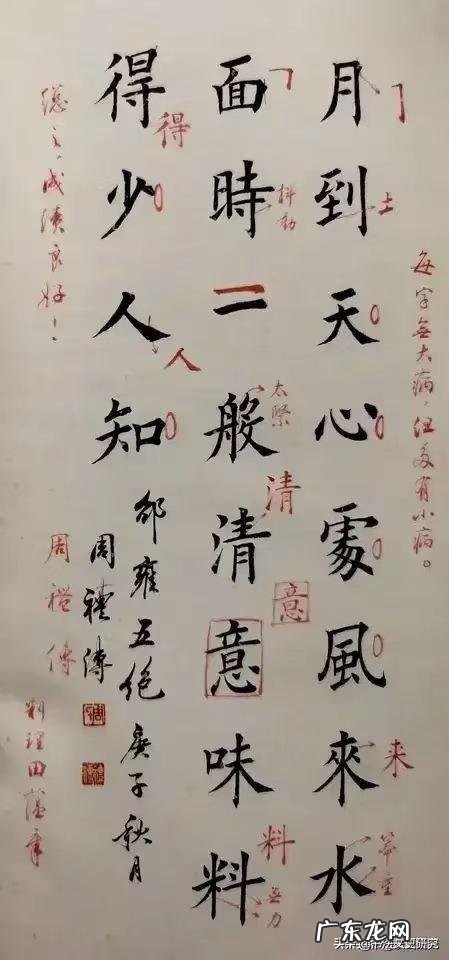 每字無大病，但多有小病。
月到天心處風來水
土
来
笨重
面時一般清意味料
抖動
太緊
清
意
料
無力
得少人知
得
人
邵雍五绝 庚子秋月
周禮傳
總之，成績良好！
周禮傳
田蘊章
广东龙网